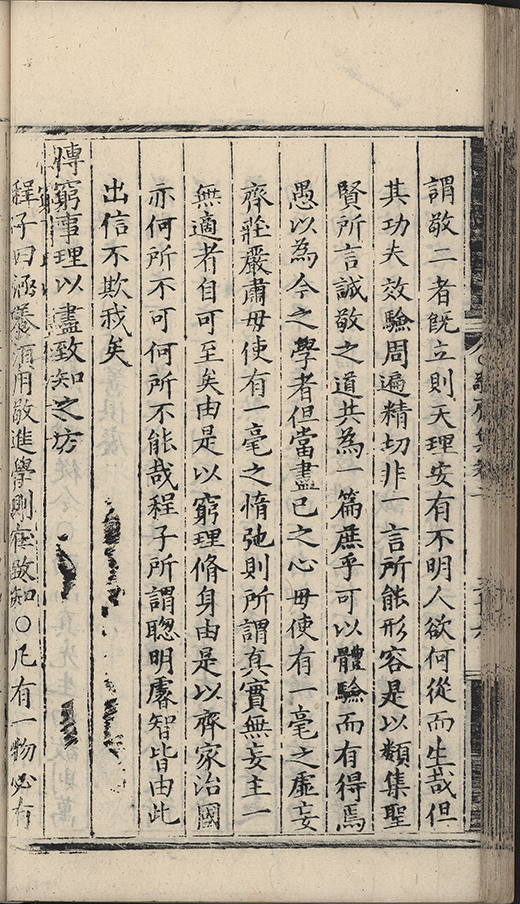 謂敬二者旣立則天理安有不明人欲何從而生哉但
其功夫效驗周遍精切非一言所能形容是以類集聖
賢所言誠敬之道共為一篇庶乎可以體驗而有得焉
愚以為今之學者但當盡己之心毋使有一毫之虛妄
齊莊嚴肅毋使有一毫之惰弛則所謂真實無妄主一
無適者自可至矣由是以窮理脩身由是以齊家治國
亦何所不可何所不能哉程子所謂聦明睿智皆由此
出信不欺我矣
博窮事理以盡致知之方
程子曰涵養須用敬進學則在致知○凡有一物必有